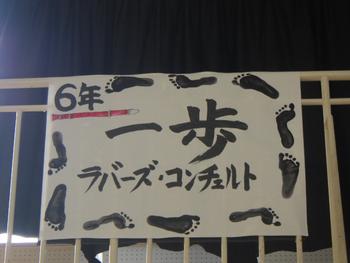 6年
一歩
ラバーズ・コンチェルト